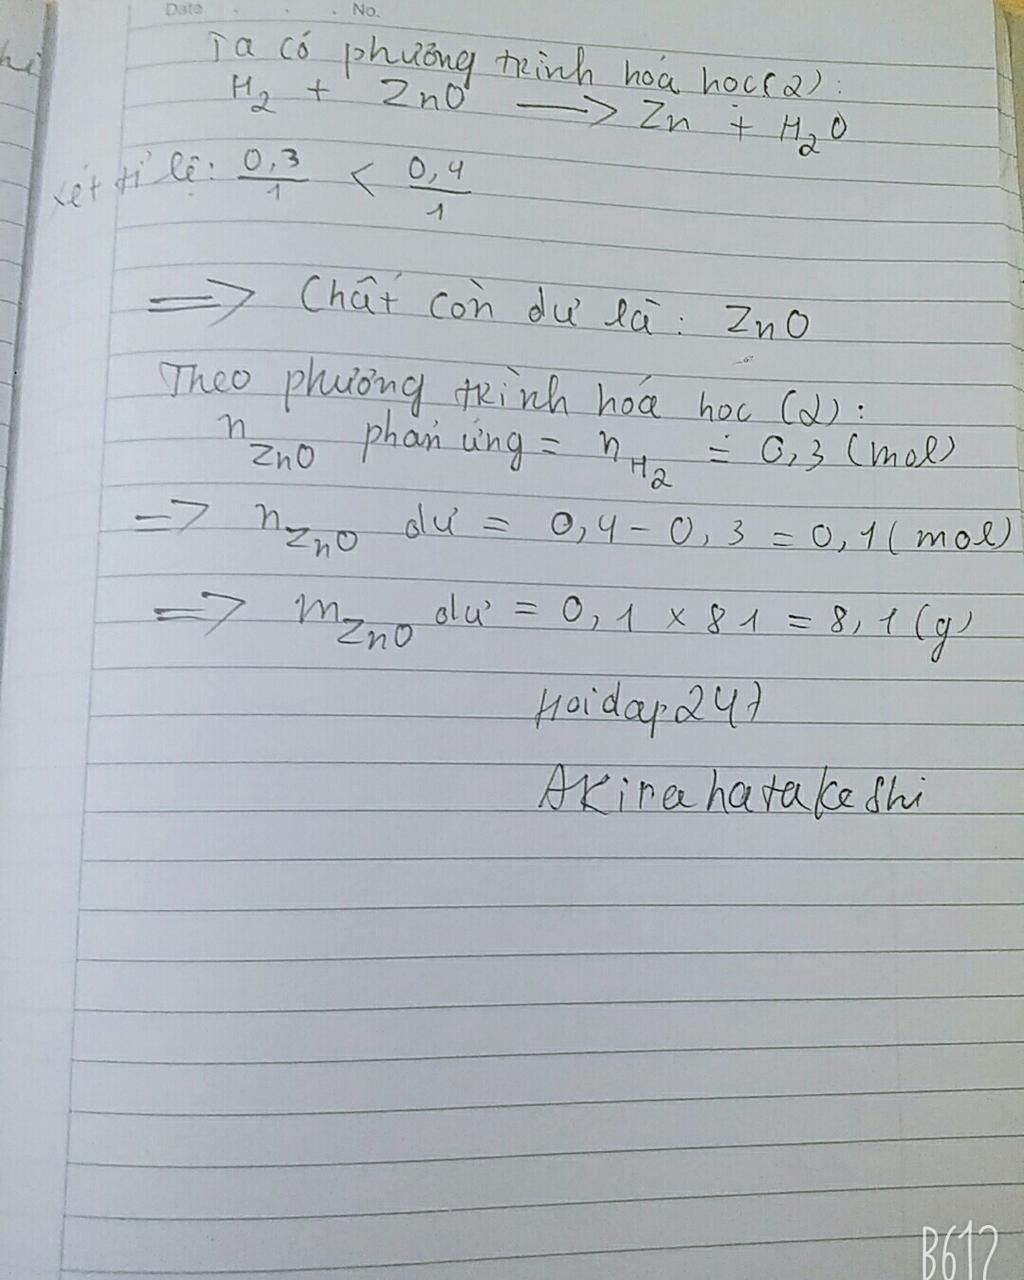 Date No.
Ta có phương trình hóa học(2):
H₂ + ZnO => Zn + H₂O
xét tỉ lệ: 0,3/1 < 0,4/1
=> Chất còn dư là: ZnO
Theo phương trình hóa học (2):
n ZnO phản ứng = n H₂ = 0,3 (mol)
=> n ZnO dư = 0,4 - 0,3 = 0,1 (mol)
=> m ZnO dư = 0,1 x 81 = 8,1 (g)
Hoidap247
Akirahatakeshi
B612